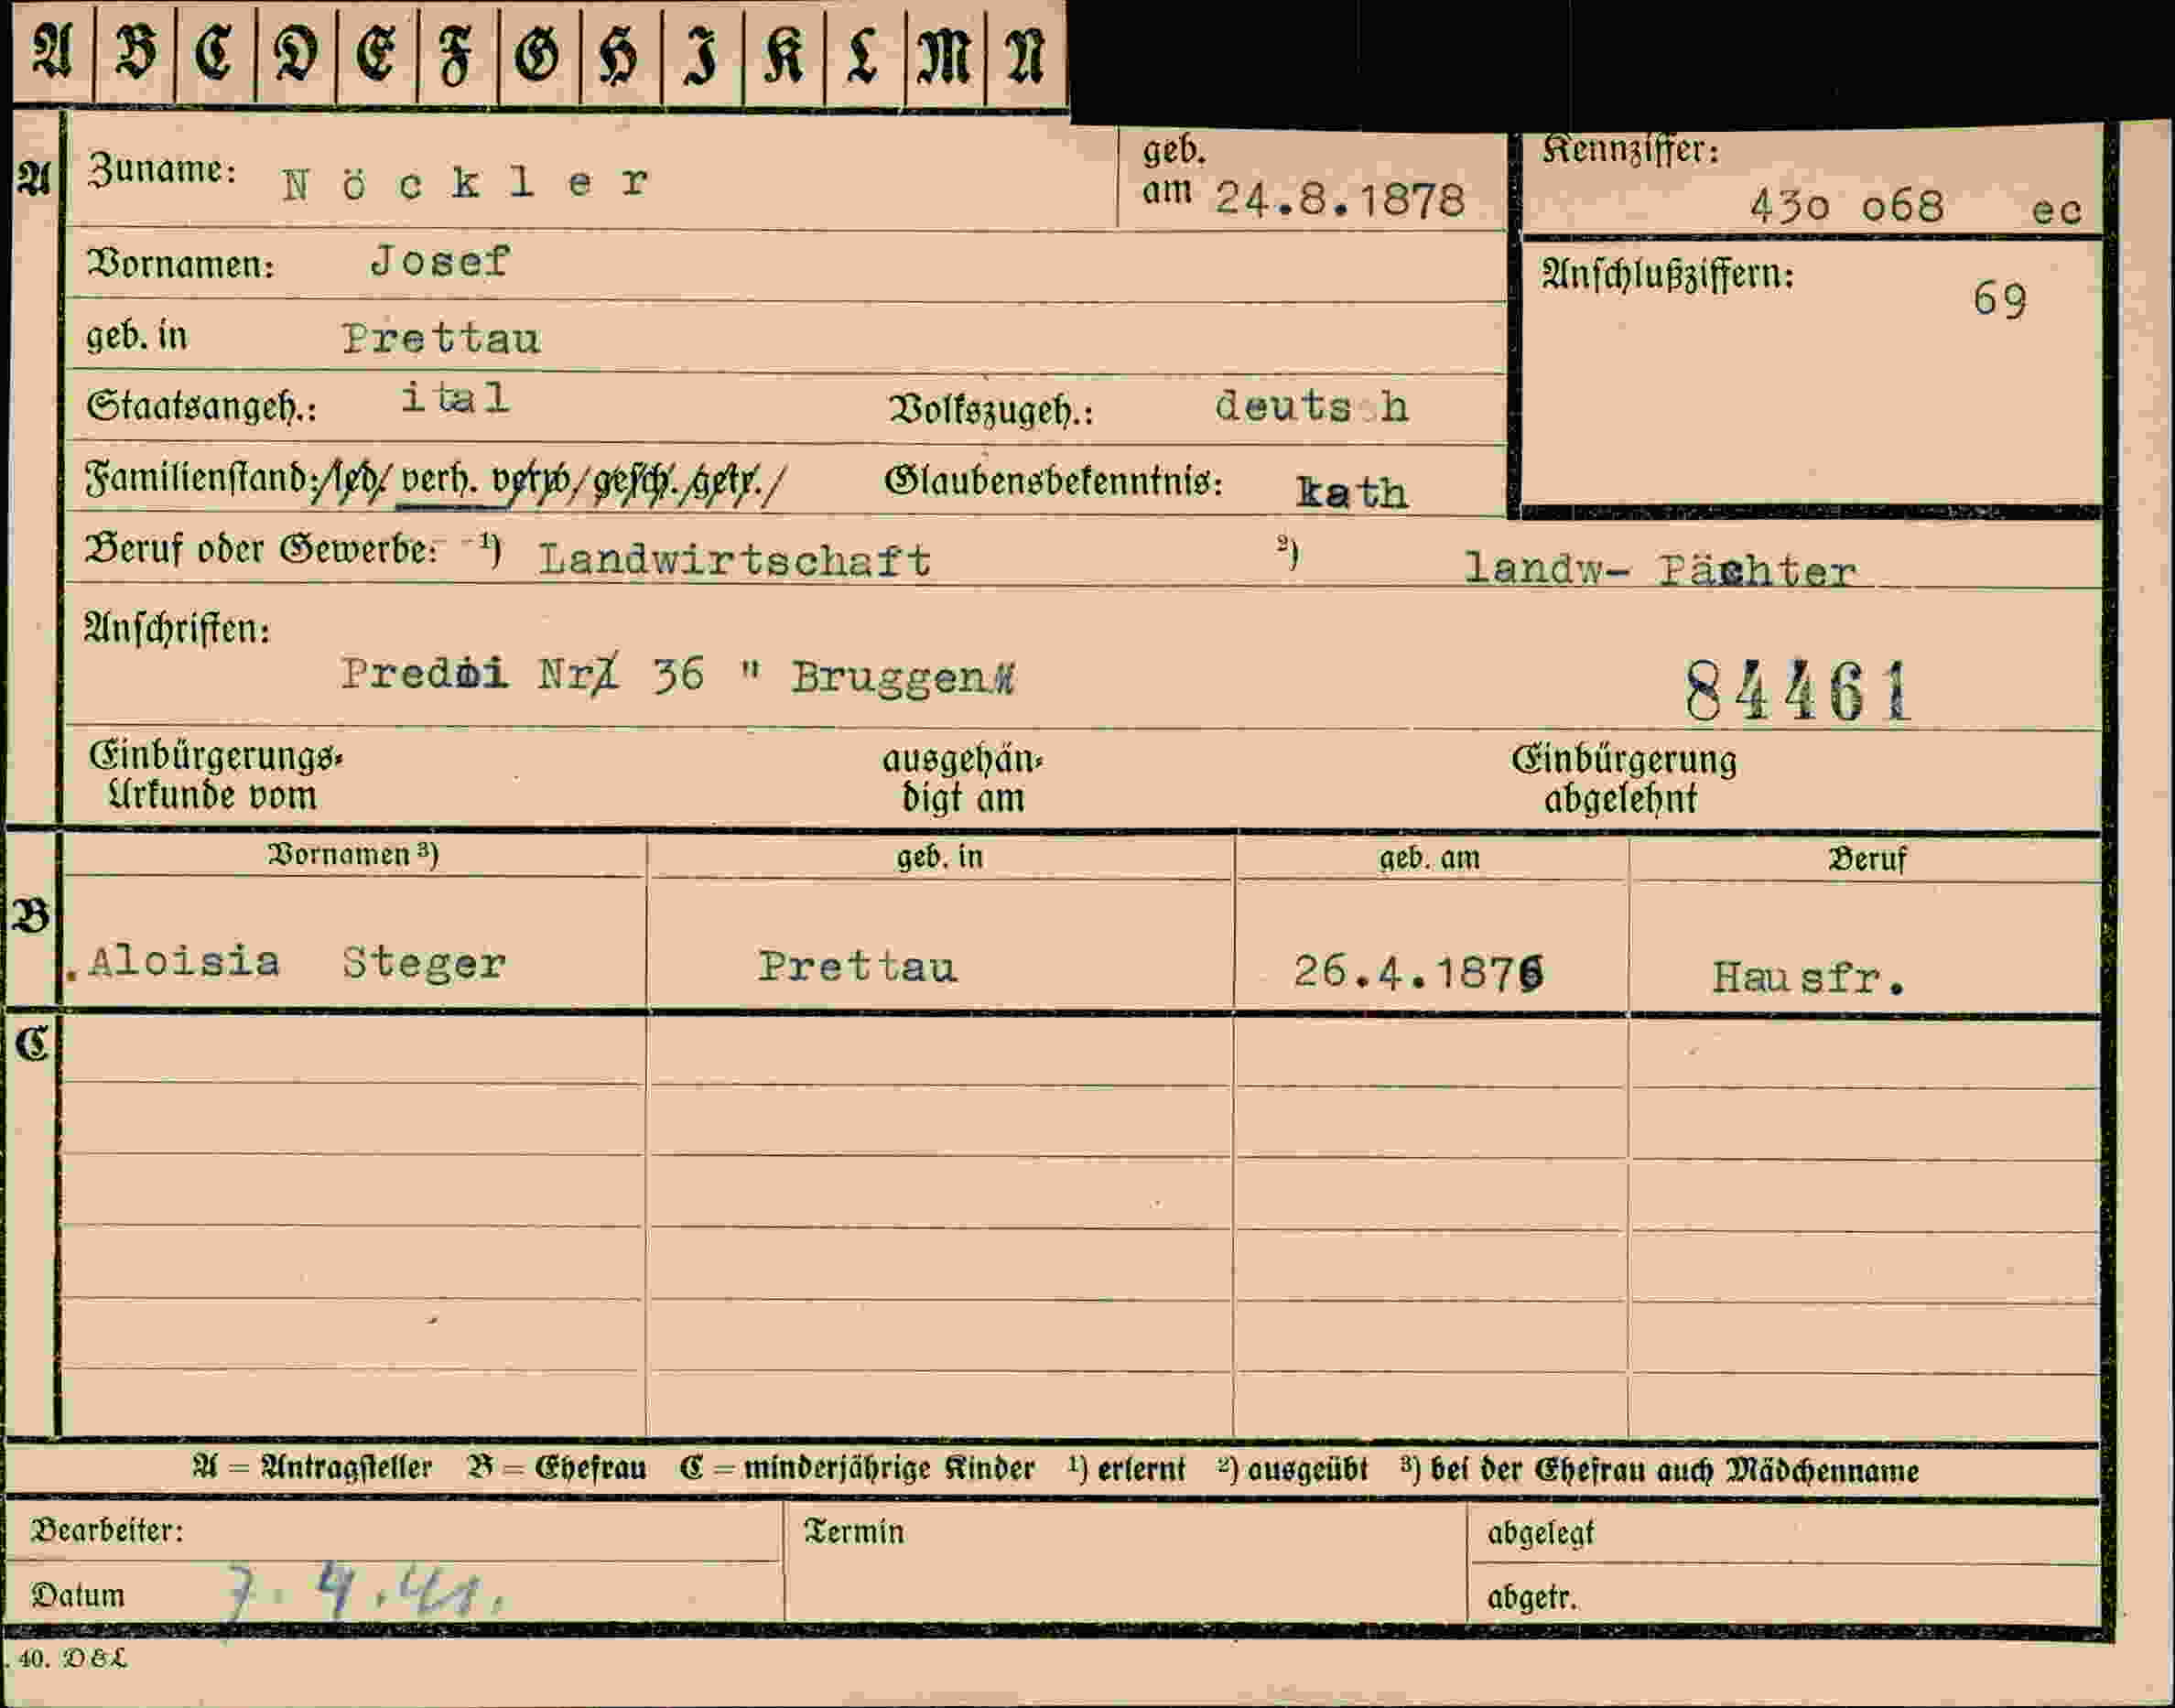 A B C D E F G H I K L M N
A Zuname: Nöckler geb. am 24.8.1878 Kennziffer: 43o o68 ec
Vornamen: Josef Anschlußziffern: 69
geb. in Prettau
Staatsangeh.: ital Volkszugeh.: deuts h
Familienstand: /led/ verh. verw/ gesch./getr./ Glaubensbekenntnis: kath
Beruf oder Gewerbe: 1) Landwirtschaft 2) landw- Pächter
Anschriften:
Predoi Nr 36 " Bruggen" 84461
Einbürgerungs- ausgehän- Einbürgerung
Urkunde vom digt am abgelehnt
Vornamen 3) geb. in geb. am Beruf
B
.Aloisia Steger Prettau 26.4.1876 Hausfr.
C
A = Antragsteller B = Ehefrau C = minderjährige Kinder 1) erlernt 2) ausgeübt 3) bei der Ehefrau auch Mädchenname
Bearbeiter: Termin abgelegt
Datum 7.4.41. abgetr.
. 40. D & L